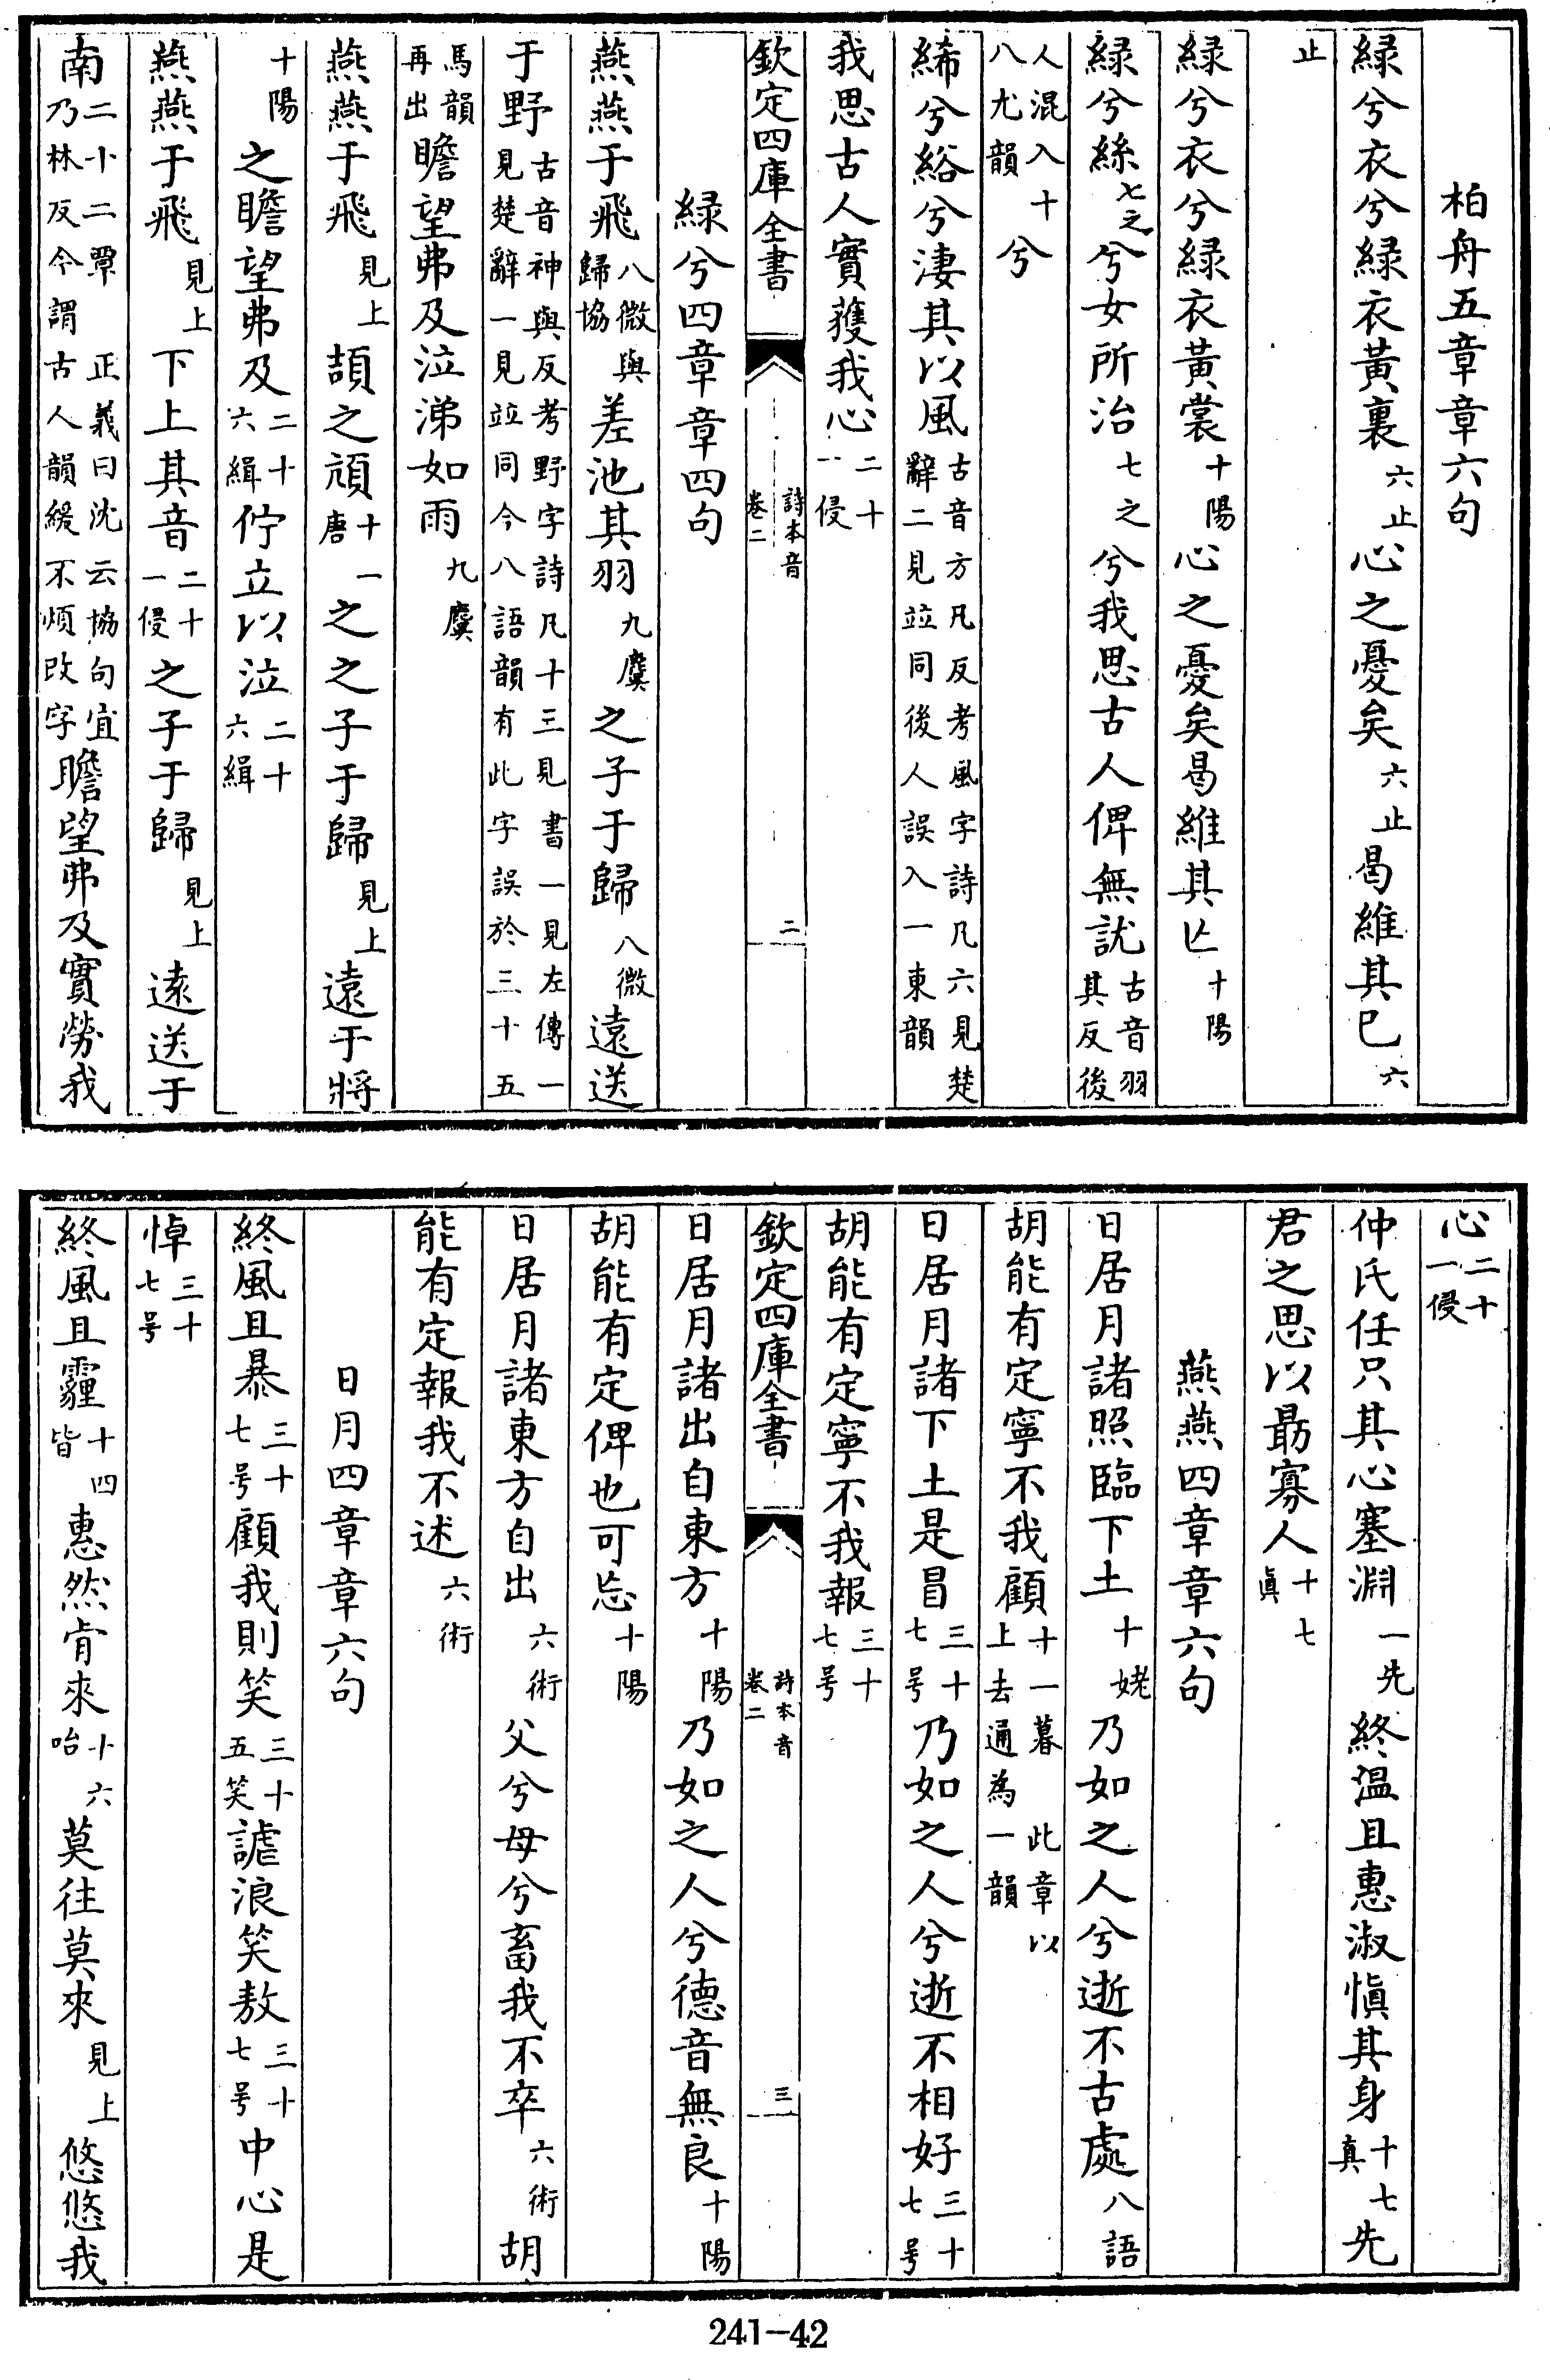 柏舟五章章六句
緑兮衣兮緑衣黃裏六止心之憂矣六止曷維其已六
止
緑兮衣兮緑衣黃裳十陽心之憂矣曷維其亡十陽
緑兮絲七之兮女所治七之兮我思古人俾無訧古音羽其反後
人混入十八尤韻兮
絺兮綌兮淒其以風古音方凡反考風字詩凡六見楚辭二見竝同後人誤入一東韻
我思古人實獲我心二十一侵
欽定四庫全書 詩本音卷二 二
緑兮四章章四句
燕燕于飛八微與歸協差池其羽九麌之子于歸八微遠送
于野古音神與反考野字詩凡十三見書一見左傳一見楚辭一見竝同今八語韻有此字誤於三十五
馬韻再出瞻望弗及泣涕如雨九麌
燕燕于飛見上頡之頏十一唐之之子于歸見上遠于將
十陽之瞻望弗及二十六緝佇立以泣二十六緝
燕燕于飛見上下上其音二十一侵之子于歸見上遠送于
南二十二覃 正義曰沈云協句宜乃林反今謂古人韻緩不煩改字瞻望弗及實勞我
心二十一侵
仲氏任只其心塞淵一先終温且惠淑慎其身十七真先
君之思以勗寡人十七真
燕燕四章章六句
日居月諸照臨下土十姥乃如之人兮逝不古處八語
胡能有定寧不我顧十一暮 此章以上去通為一韻
日居月諸下土是冒三十七号乃如之人兮逝不相好三十七号
胡能有定寧不我報三十七号
欽定四庫全書 詩本音卷二 三
日居月諸出自東方十陽乃如之人兮德音無良十陽
胡能有定俾也可忘十陽
日居月諸東方自出六術父兮母兮畜我不卒六術胡
能有定報我不述六術
日月四章章六句
終風且暴三十七号顧我則笑三十五笑謔浪笑敖三十七号中心是
悼三十七号
終風且霾十四皆惠然肯來十六咍莫往莫來見上悠悠我
241-42